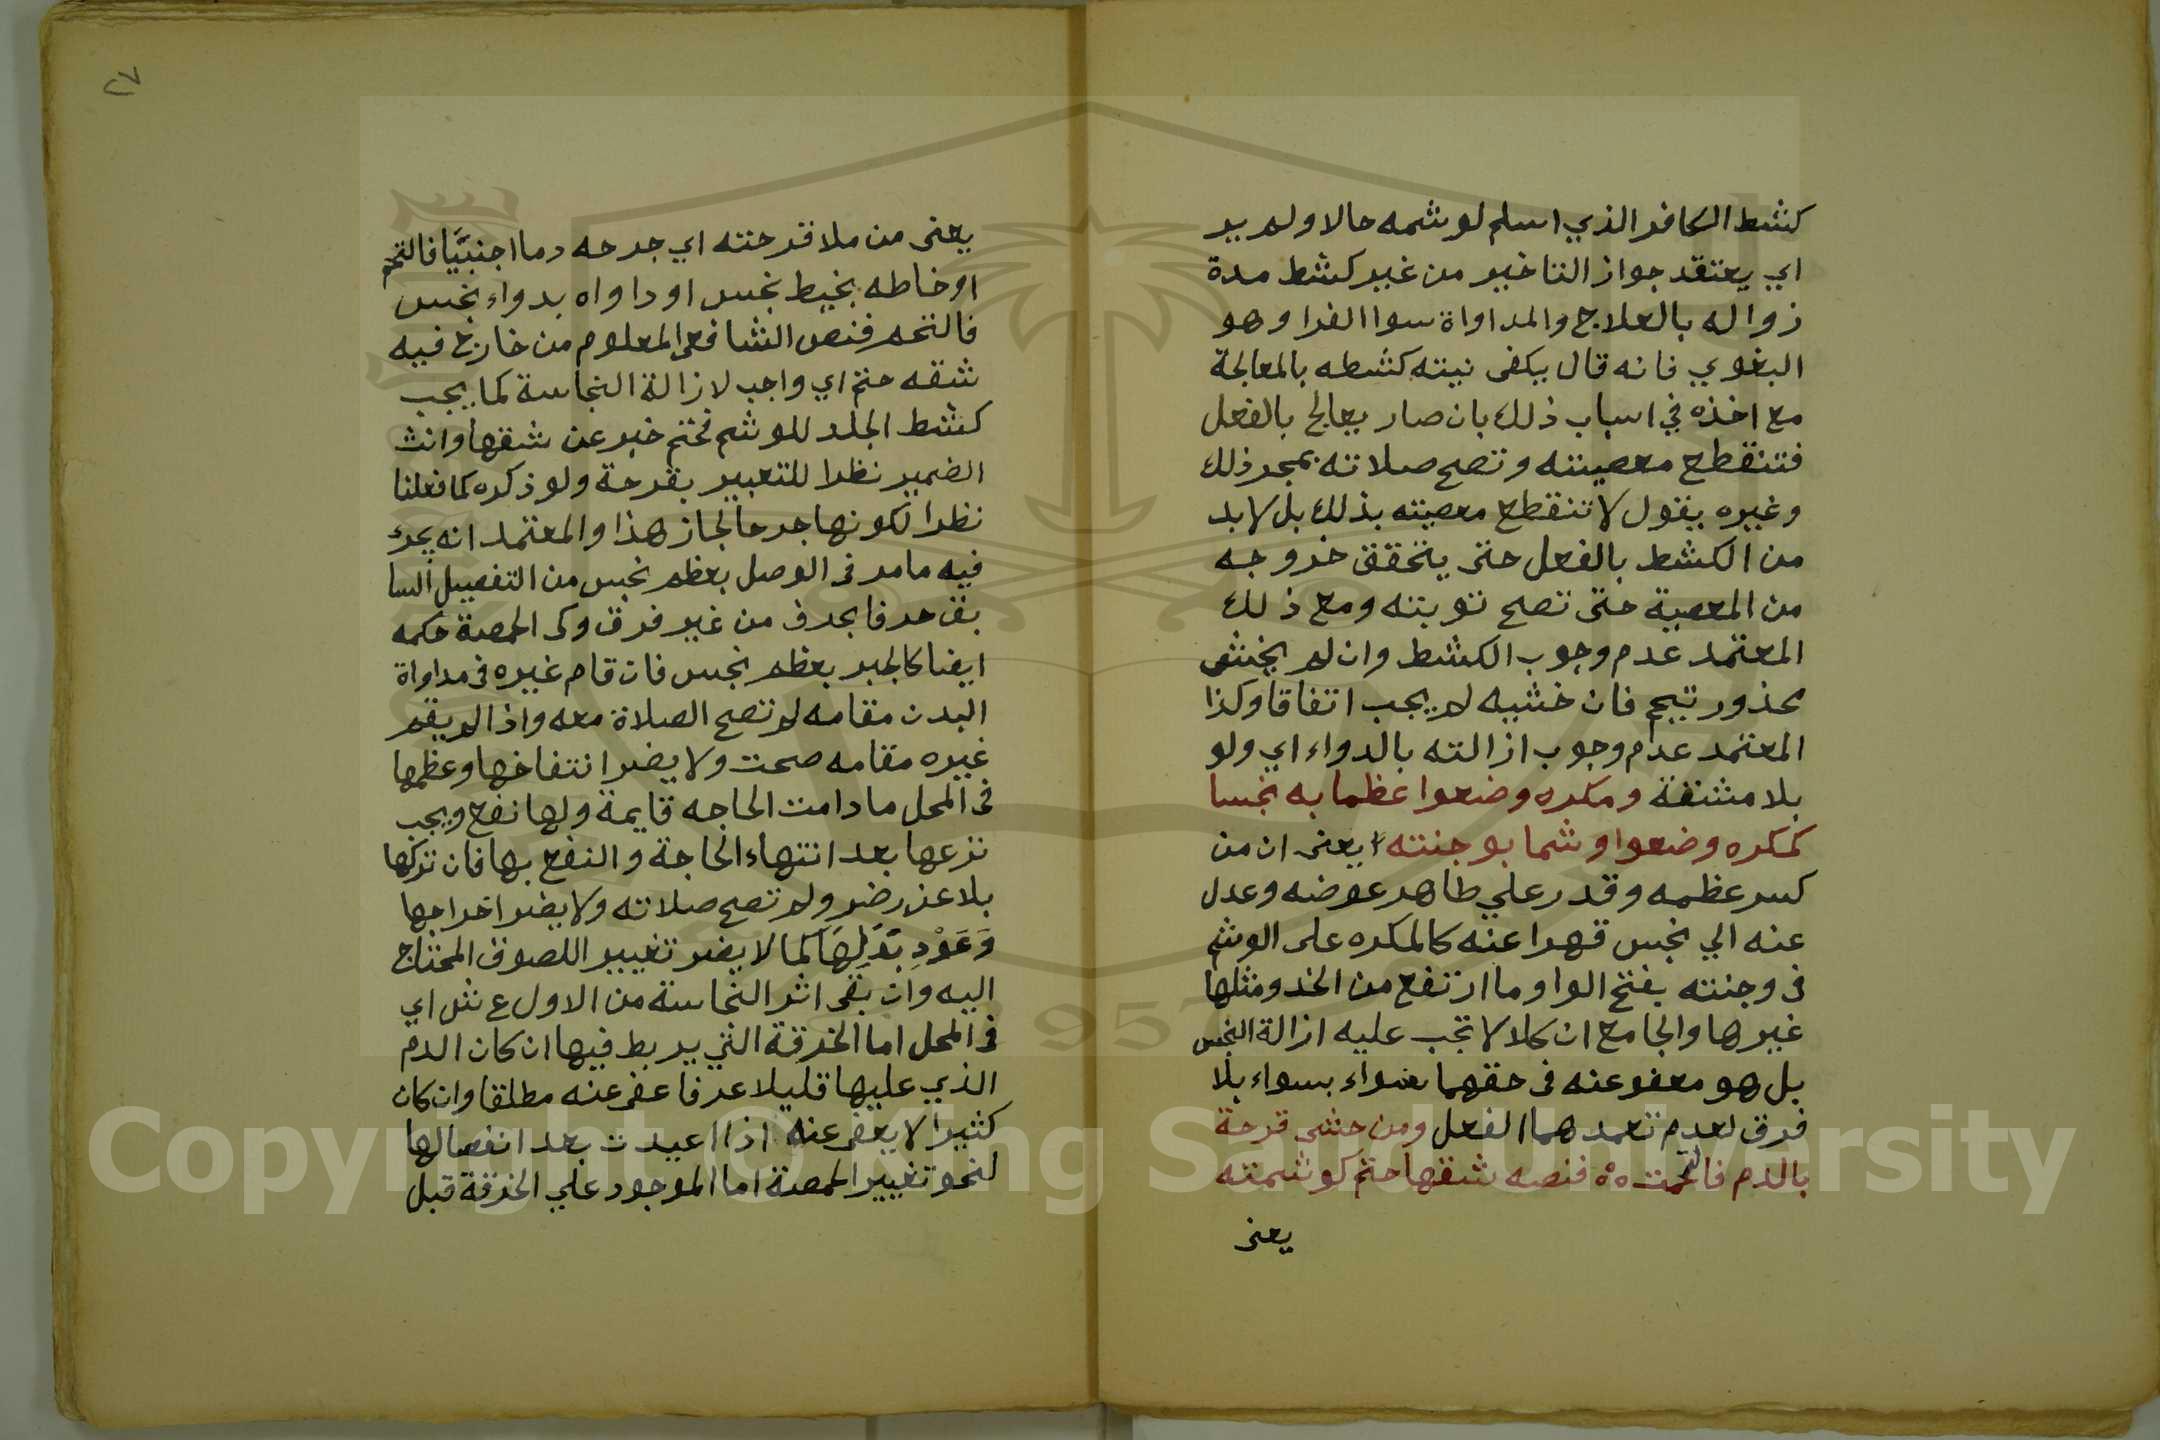 كشط الكافر الذي اسلم لوشمه حالا ولم ير
اي يعتقد جواز التاخير من غير كشط مدة
زواله بالعلاج والمداواة سوا الفرا وهو
البغوي فانه قال يكفى نيته كشطه بالمعالجة
مع اخذه في اسباب ذلك بان صار يعالج بالفعل
فتنقطع معصيته وتصح صلاته بمجرد ذلك
وغيره يقول لا تنقطع معصيته بذلك بل لابد
من الكشط بالفعل حتى يتحقق خروجه
من المعصية حتى تصح توبته ومع ذلك
المعتمد عدم وجوب الكشط وان لم يخش
محذور تيمم فان خشيه لم يجب اتفاقا وكذا
المعتمد عدم وجوب ازالته بالدواء اي ولو
بلا مشقة ومكره وضعوا عظما به نجسا
كمكره وضعوا وشما بوجنته يعنى ان من
كسر عظمه وقدر علي طاهر عوضه وعدل
عنه الي نجس قهرا عنه كالمكره على الوشم
فى وجنته بفتح الواو ما ارتفع من الخد ومثلها
غيرها والجامع ان كلا لا تجب عليه ازالة النجس
بل هو معفو عنه فى حقهما سواء بسواء بلا
فرق لعدم تعمدهما الفعل ومن حشى قرحة
بالدم فالتحمت ه فنصه شقها حتم كوشمته
يعنى
٢٧
يعنى من ملا قرحته اي جرحه دما اجنبيًّا فالتحم
او خاطه بخيط نجس او داواه بدواء نجس
فالتحم فنص الشافعى المعلوم من خارج فيه
شقه حتم اي واجب لازالة النجاسة كما يجب
كشط الجلد للوشم فحتم خبر عن شقها وانث
الضمير نظرا للتعبير بقرحة ولو ذكره كما فعلنا
نظرا لكونها جرحا لجاز هذا والمعتمد انه يجرى
فيه ما مر فى الوصل بعظم نجس من التفصيل السا
بق حرفا بحرف من غير فرق وكى الحمصة حكمه
ايضا كالجبر بعظم نجس فان قام غيره فى مداواة
البدن مقامه لم تصح الصلاة معه واذا لم يقم
غيره مقامه صحت ولا يضر انتفاخها وعظمها
فى المحل ما دامت الحاجه قايمة ولها نفع ويجب
نزعها بعد انتهاء الحاجة والنفع بها فان تركها
بلا عذر ضر ولم تصح صلاته ولا يضر اخراجها
وَعَوْدِ بَدَلِهَا كما لا يضر تغيير اللصوق المحتاج
اليه وان بقى اثر النجاسة من الاول ع ش اي
فى المحل اما الخرقة التي يربط فيها ان كان الدم
الذي عليها قليلا عرفا عفى عنه مطلقا وان كان
كثيرا لا يعفى عنه اذا اعيدت بعد انفصالها
لنحو تغيير الحمصة اما الموجود علي الخرقة قبل
Copyright © King Saud University
1957